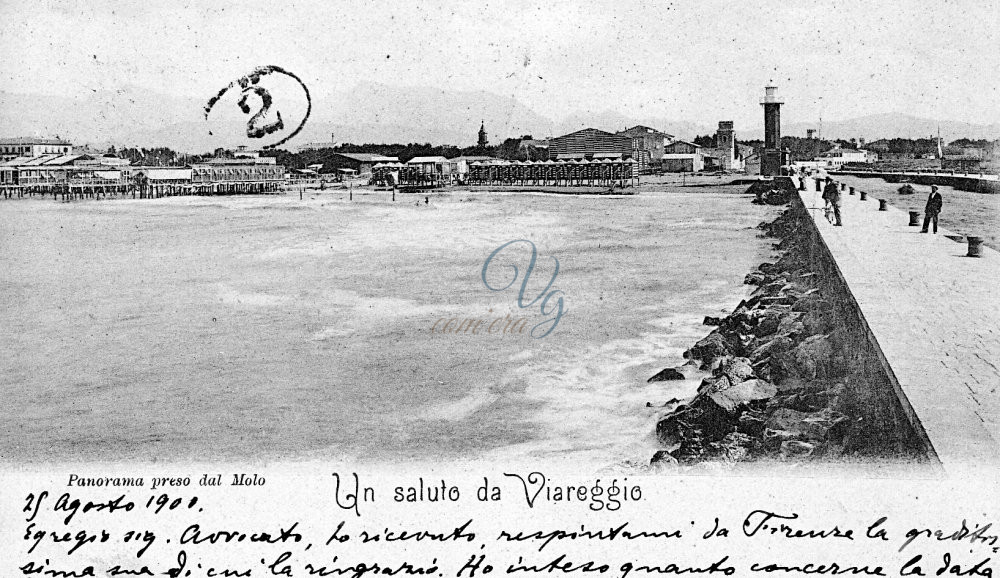 2
Vg
com'era
Panorama preso dal Molo
Un saluto da Viareggio.
25 Agosto 1900.
Egregio sig. Avvocato, ho ricevuto, respintami da Firenze la graditis-
sima sua di cui la ringrazio. Ho inteso quanto concerne la data